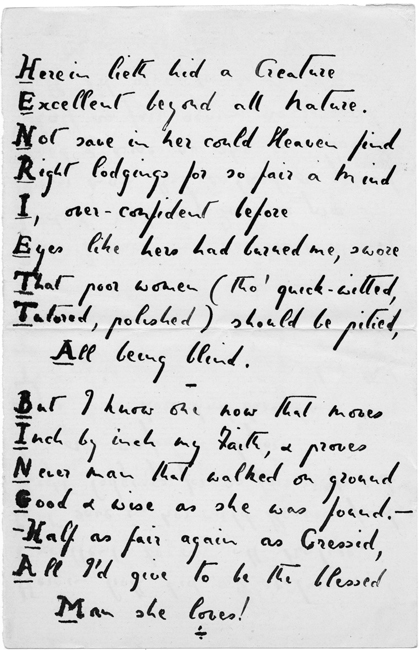 Herein lieth hid a Creature
Excellent beyond all Nature.
Not save in her could Heaven find
Right lodgings for so fair a Mind
I, over-confident before
Eyes like hers had burned me, swore
That poor women (tho' quick-witted,
Tutored, polished) should be pitied,
All being blind.
But I know one now that moves
Inch by inch my Faith, & proves
Never man that walked on ground
Good & wise as she was found.—
-Half as fair again as Cressid,
All I'd give to be the blessed
Man she loves!